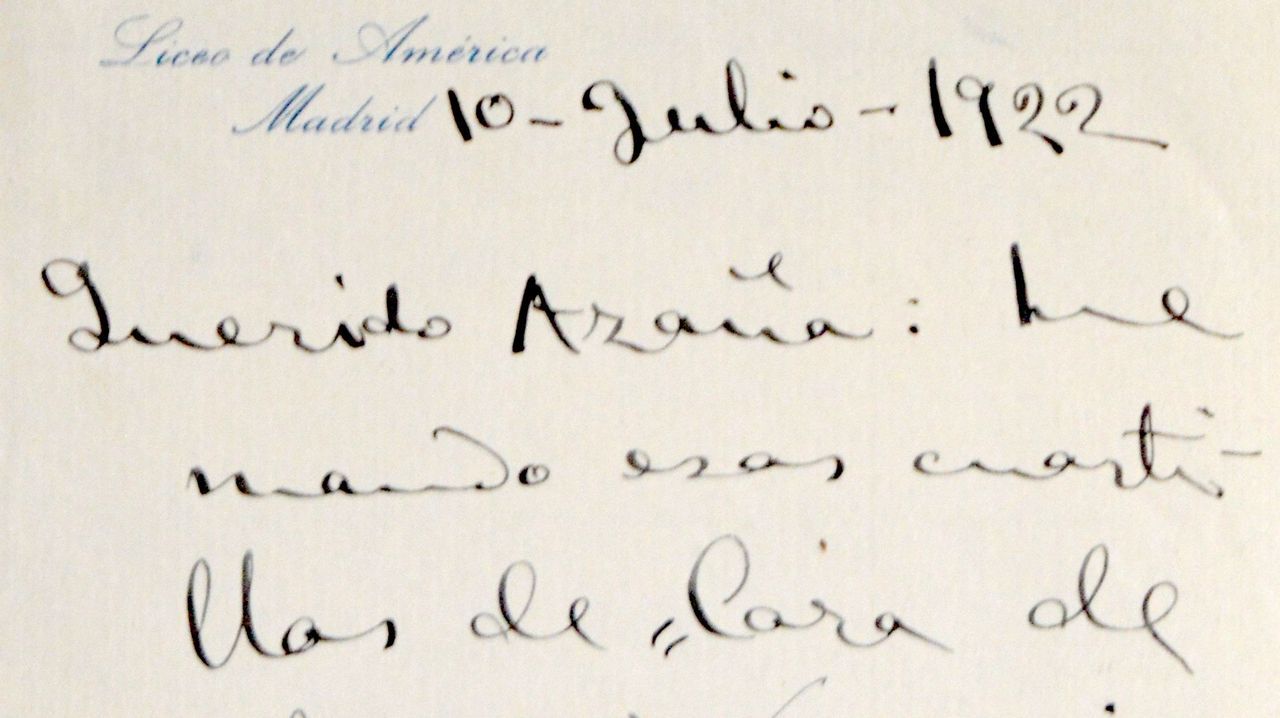 Liceo de América
Madrid 10-Julio-1922
Querido Azaña: hue
mando esas cuarti-
llas de "Cara de